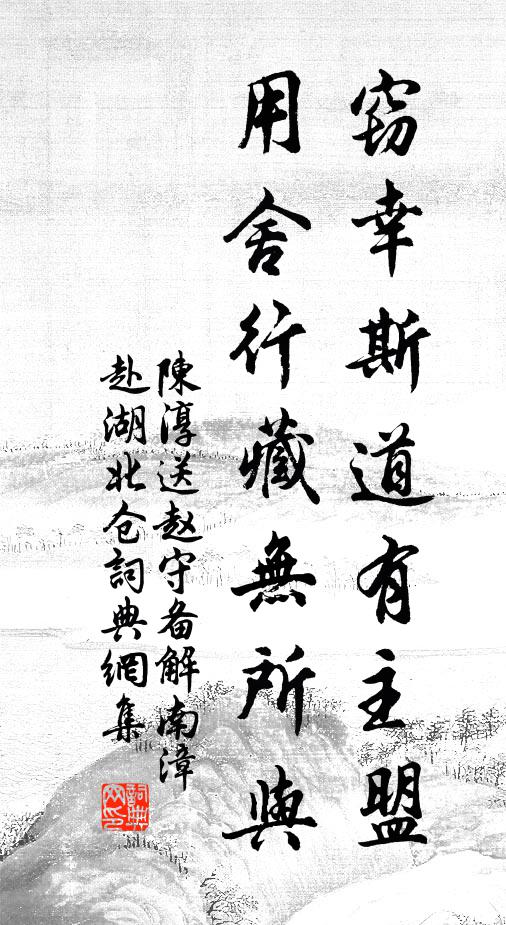 窃幸斯道有主盟
用舍行藏無所與
陳淳送赵守备解南漳
赴湖北仓詞典網集